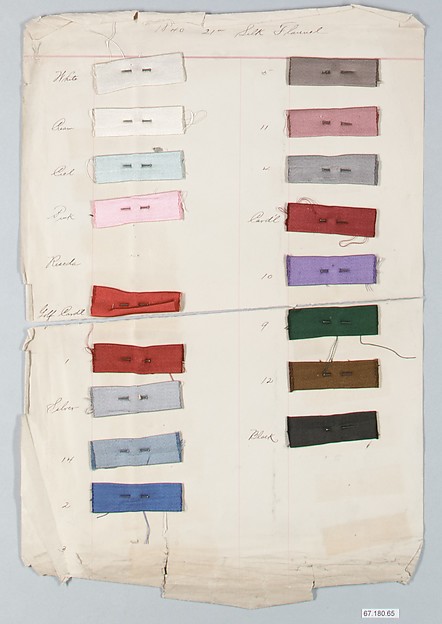 21- Silk Flannel
White
Cream
Ciel
Pink
Reseda
Golf Cardl
1
Silver
14
2
11
4
Cardl
10
9
12
Black
67.180.65